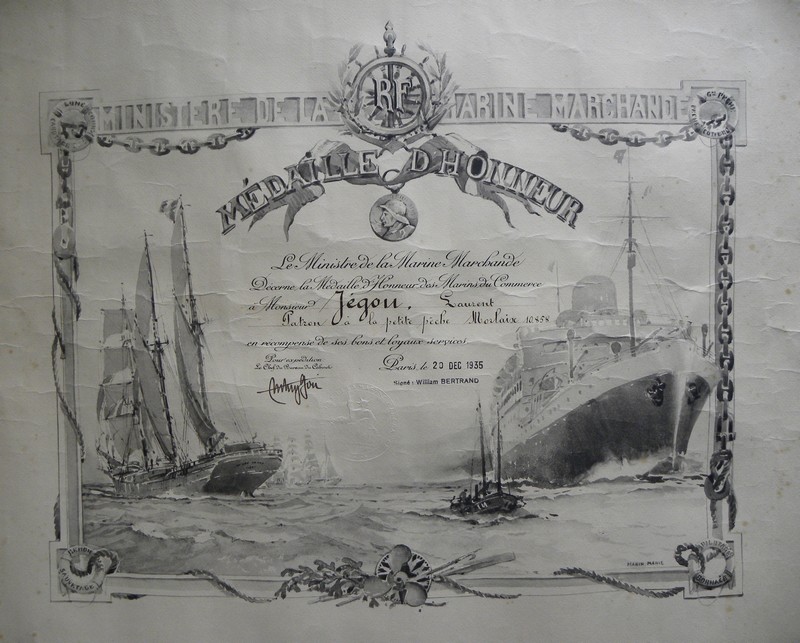 RF
MINISTERE DE LA MARINE MARCHANDE
MÉDAILLE D'HONNEUR
Le Ministre de la Marine Marchande
Décerne la Médaille d'Honneur des Marins du Commerce
à Monsieur Jégou, Laurent
Patron à la petite pêche Morlaix 10858
en récompense de ses bons et loyaux services
Pour expédition
Le Chef du Bureau du Cabinet
Paris, le 20 DEC 1935
Signé : William BERTRAND
MARIN MARIE